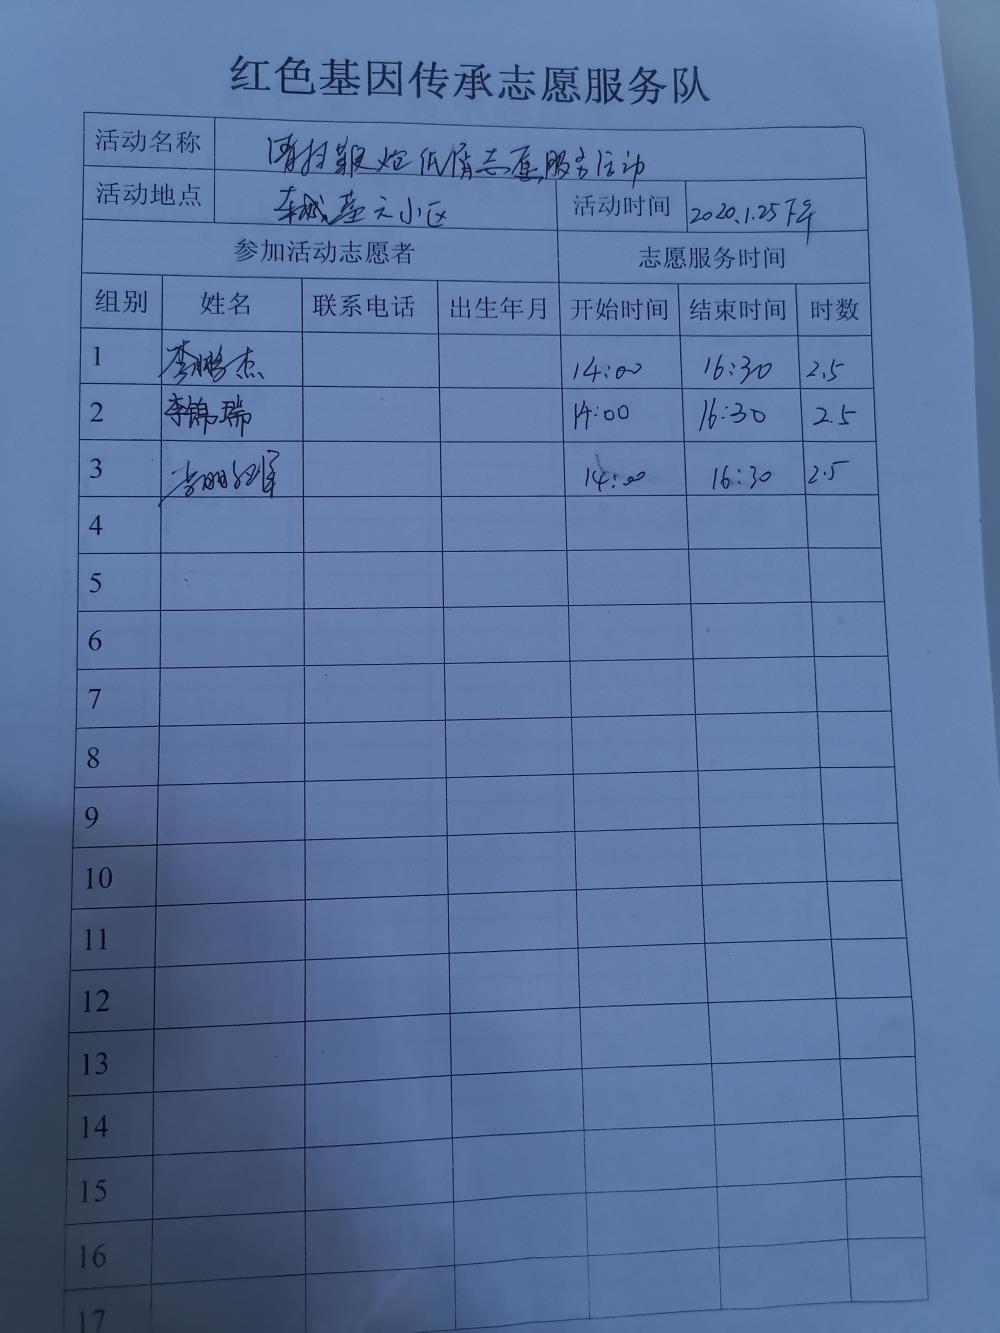 红色基因传承志愿服务队
活动名称 清扫鞭炮纸屑志愿服务活动
活动地点 东城基元小区 活动时间 2020.1.25下午
参加活动志愿者 志愿服务时间
组别 姓名 联系电话 出生年月 开始时间 结束时间 时数
1 李鹏杰 14:00 16:30 2.5
2 李锦瑞 14:00 16:30 2.5
3 14:00 16:30 2.5
4
5
6
7
8
9
10
11
12
13
14
15
16
17